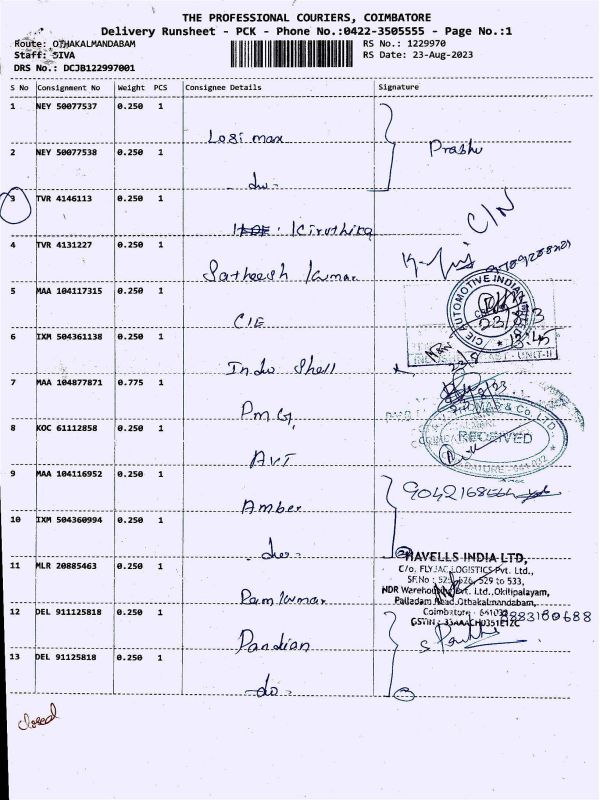 THE PROFESSIONAL COURIERS, COIMBATORE
Delivery Runsheet - PCK - Phone No.:0422-3505555 - Page No.:1
Route: OTHAKALMANDABAM RS No.: 1229970
Staff: SIVA RS Date: 23-Aug-2023
DRS No.: DCJB122997001
S No Consignment No Weight PCS Consignee Details Signature
1 NEY 50077537 0.250 1
Logimax
Prabhu
2 NEY 50077538 0.250 1
- do -
3 TVR 4146113 0.250 1
Kiruthika
C/N
4 TVR 4131227 0.250 1
Satheesh Kumar
5 MAA 104117315 0.250 1
CIE
CIE AUTOMOTIVE INDIA
6 IXM 504361138 0.250 1
13.45
UNIT-II
Indo Shell
7 MAA 104877871 0.775 1
PMG
8 KOC 61112858 0.250 1
& Co. LTD.
RECEIVED
AVT
9 MAA 104116952 0.250 1
Amber
10 IXM 504360994 0.250 1
- do -
HAVELLS INDIA LTD,
11 MLR 20885463 0.250 1
C/o, FLYJAC LOGISTICS Pvt. Ltd.,
SF.No : 525, 526, 529 to 533,
NDR Warehousing Pvt. Ltd., Okilipalayam,
Palladam Road, Othakalmandabam,
Ramkumar
12 DEL 911125818 0.250 1
Coimbatore - 641032
Pandian
13 DEL 91125818 0.250 1
- do -
closed